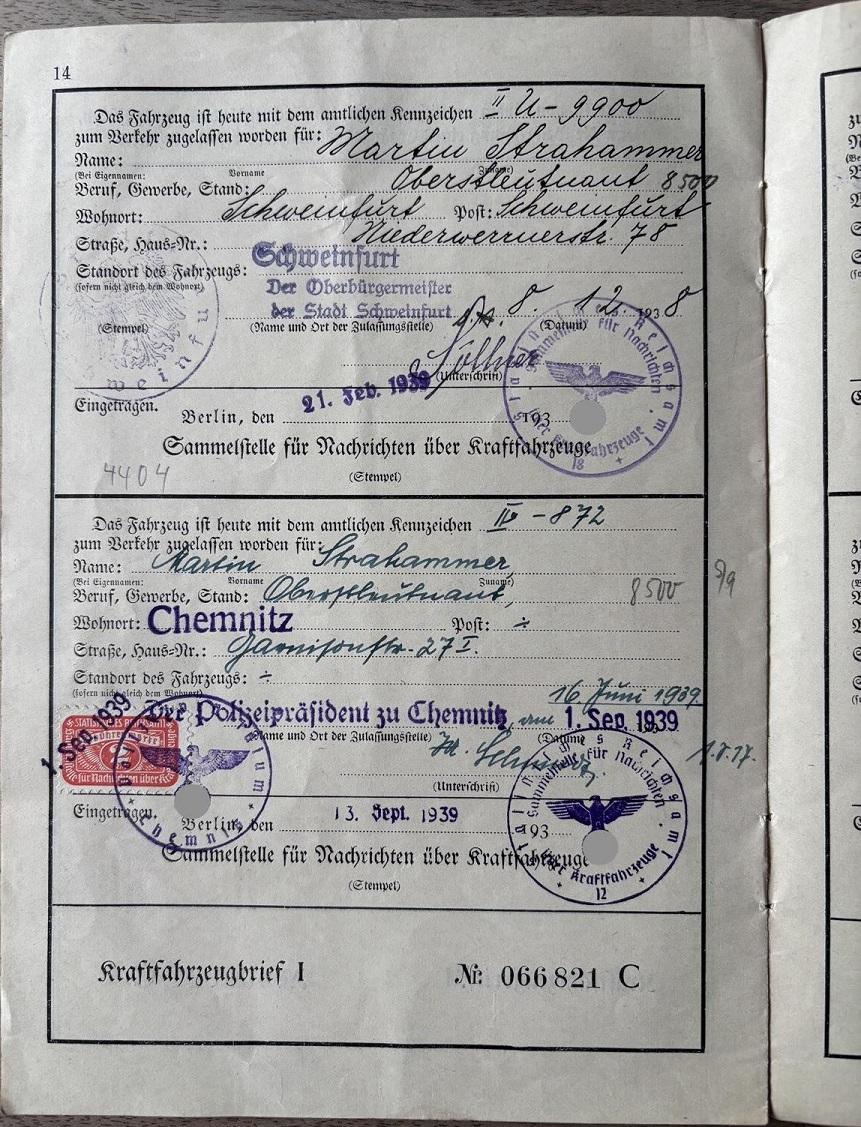 14
Das Fahrzeug ist heute mit dem amtlichen Kennzeichen II U-9900
zum Verkehr zugelassen worden für:
Name: Martin Strahammer
(Bei Eigennamen: Vorname Zuname)
Beruf, Gewerbe, Stand: Oberstleutnant 8500
Wohnort: Schweinfurt Post: Schweinfurt
Straße, Haus-Nr.: Niederwerrnerstr. 78
Standort des Fahrzeugs: Schweinfurt
(sofern nicht gleich dem Wohnort)
Der Oberbürgermeister
der Stadt Schweinfurt 8. 12. 1938
(Stempel) (Name und Ort der Zulassungsstelle) (Datum)
Söllner
(Unterschrift)
Eingetragen. Berlin, den 21. Feb. 1939 193
Sammelstelle für Nachrichten über Kraftfahrzeuge
4404
(Stempel)
Statistisches Reichsamt
Sammelstelle für Nachrichten über Kraftfahrzeuge
18
Das Fahrzeug ist heute mit dem amtlichen Kennzeichen IV -872
zum Verkehr zugelassen worden für:
Name: Martin Strahammer,
(Bei Eigennamen: Vorname Zuname)
Beruf, Gewerbe, Stand: Oberstleutnant, 8500 9/9
Wohnort: Chemnitz Post: ÷
Straße, Haus-Nr.: Garnisonstr. 27 I.
Standort des Fahrzeugs: ÷
(sofern nicht gleich dem Wohnort) 16 Juni 1939
Der Polizeipräsident zu Chemnitz, am 1. Sep. 1939
1. Sep. 1939
(Name und Ort der Zulassungsstelle) (Datum)
(Unterschrift)
Eingetragen. Berlin, den 13. Sept. 1939 193
Sammelstelle für Nachrichten über Kraftfahrzeuge
(Stempel)
Statistisches Reichsamt
Sammelstelle für Nachrichten über Kraftfahrzeuge
12
Kraftfahrzeugbrief I Nr. 066821 C